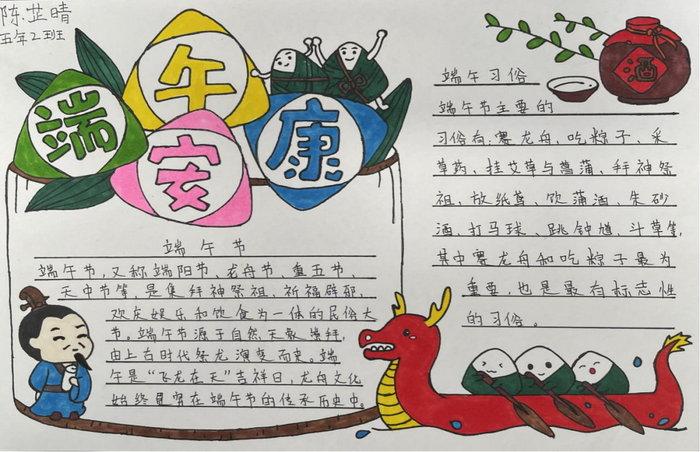 陈芷晴
五年2班
端午安康
端午节
端午节，又称端阳节、龙舟节、重五节、
天中节等，是集拜神祭祖、祈福辟邪、
欢庆娱乐和饮食为一体的民俗大
节。端午节源于自然天象崇拜，
由上古时代祭龙演变而来。端
午是“飞龙在天”吉祥日，龙舟文化
始终贯穿在端午节的传承历史中。
酒
端午习俗
端午节主要的
习俗有：赛龙舟、吃粽子、采
草药、挂艾草与菖蒲、拜神祭
祖、放纸鸢、饮蒲酒、朱砂
酒、打马球、跳钟馗、斗草等，
其中赛龙舟和吃粽子最为
重要，也是最有标志性
的习俗。